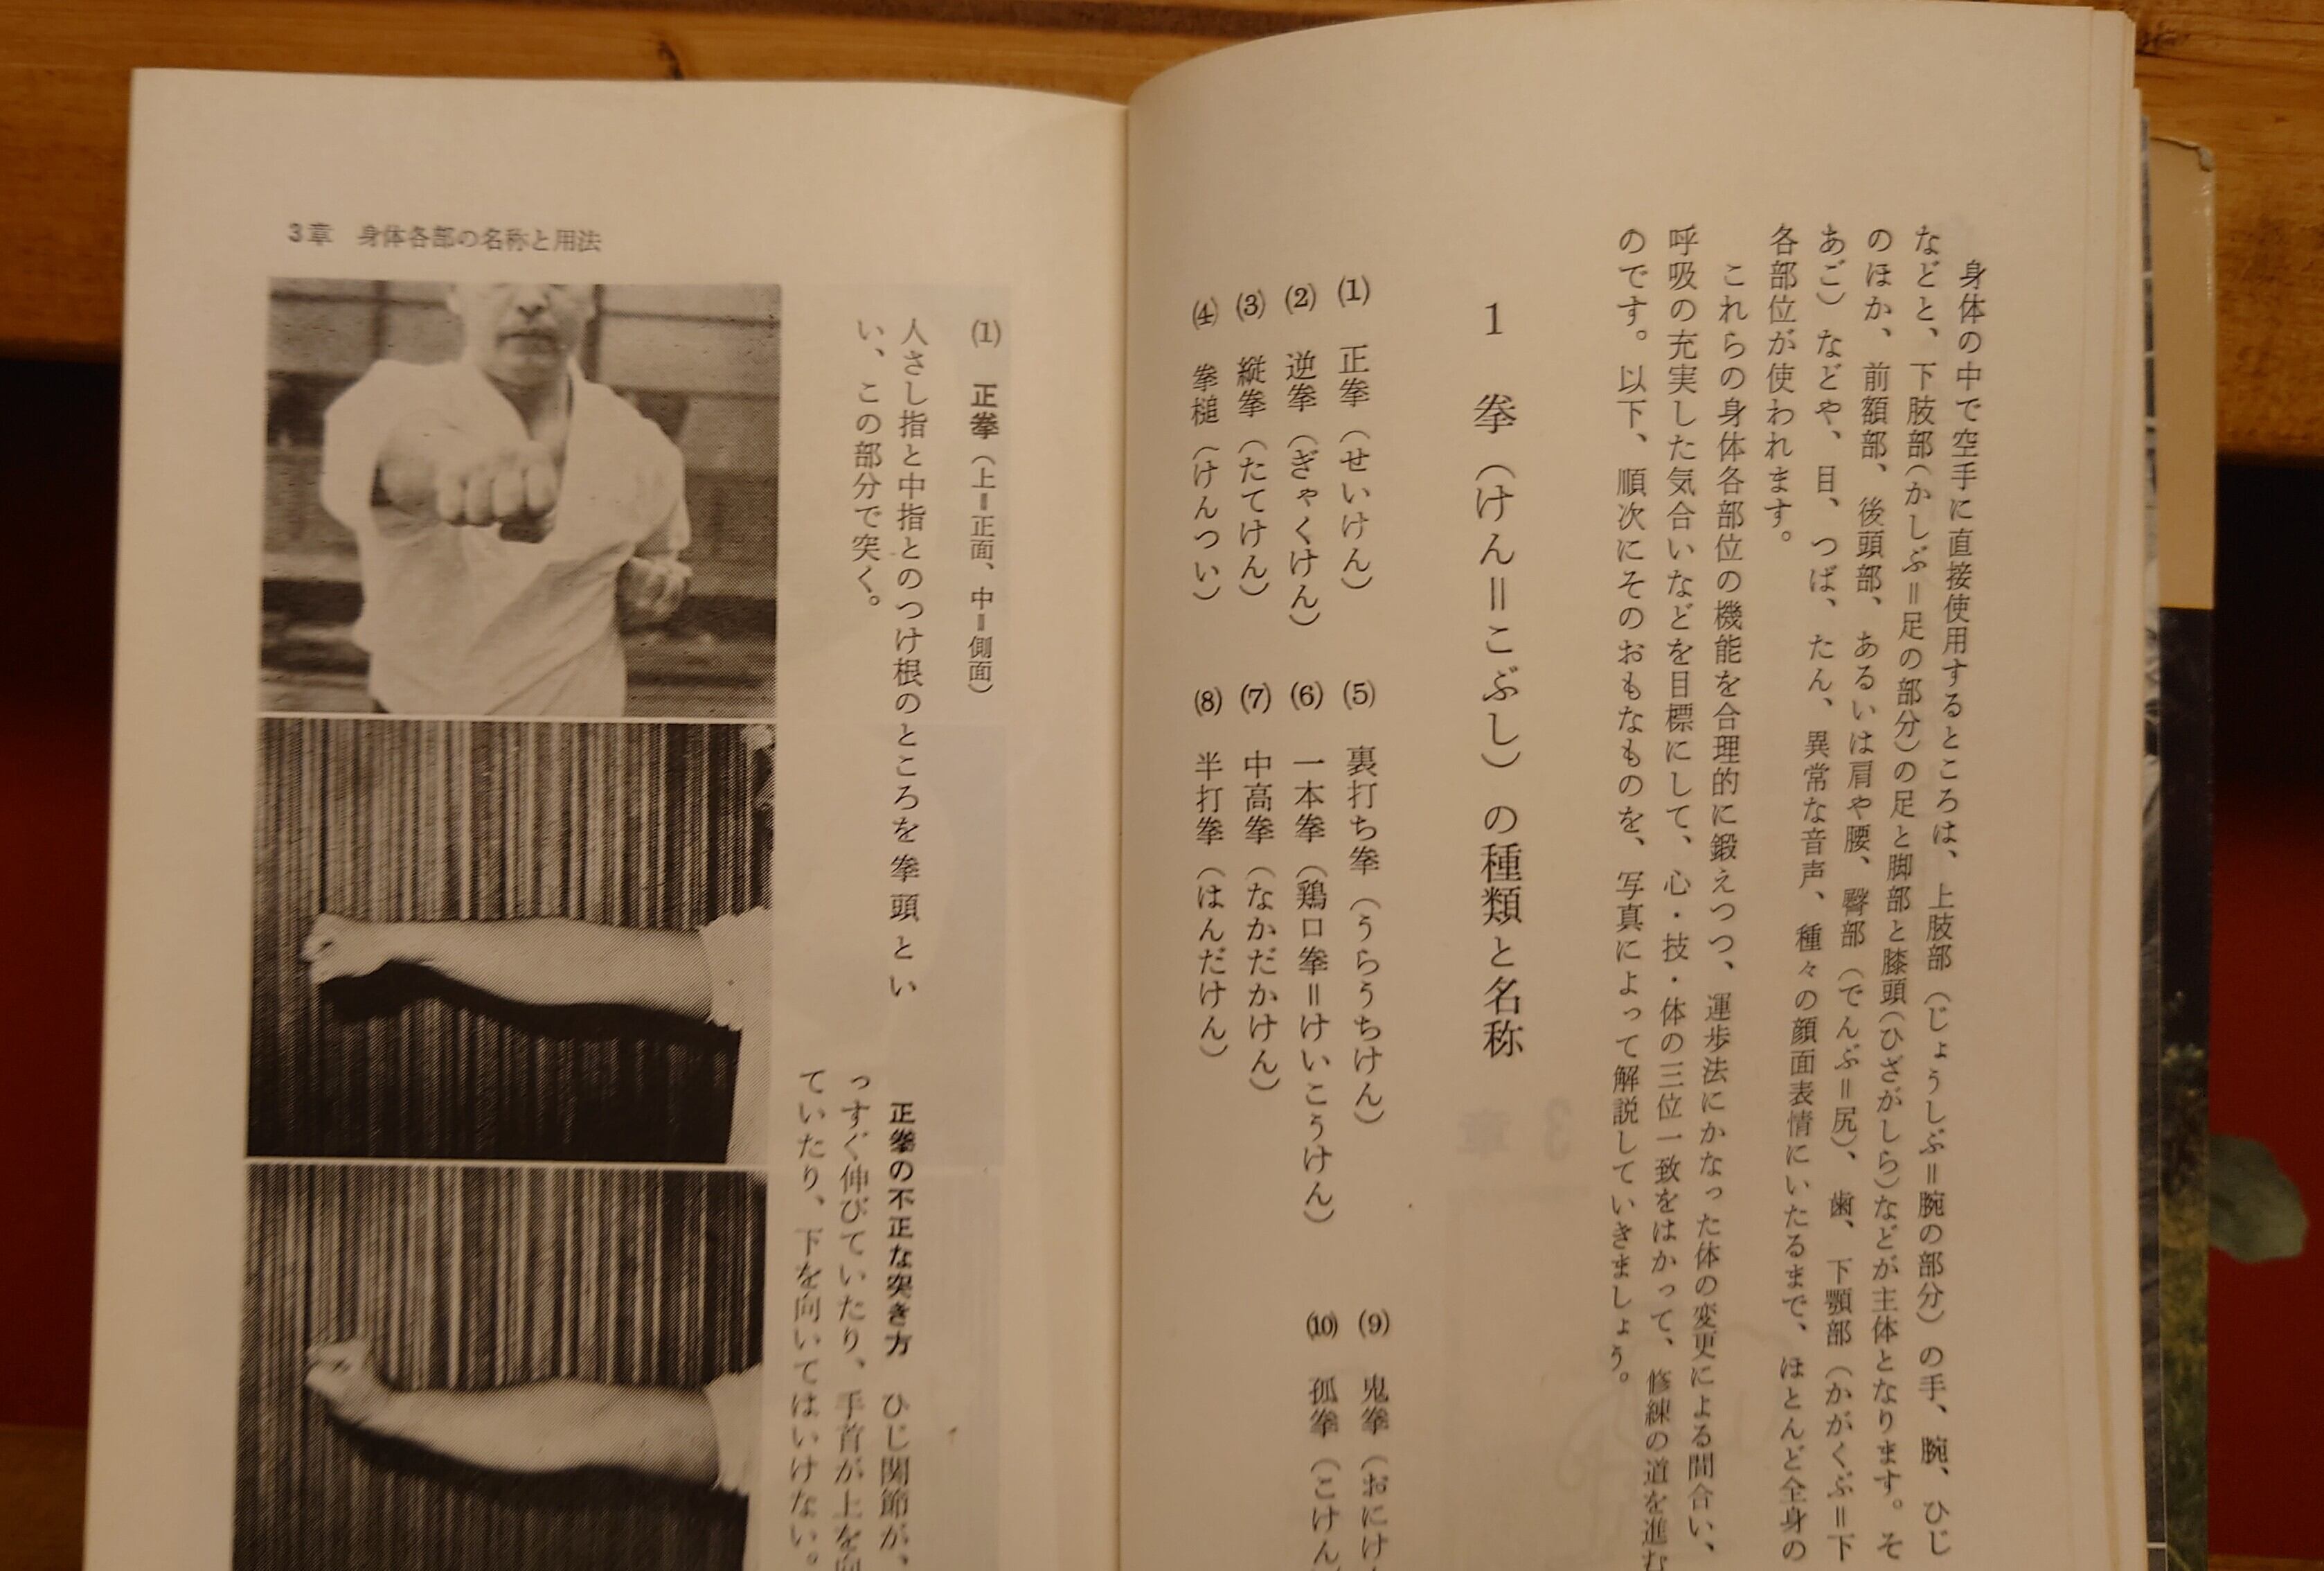 身体の中で空手に直接使用するところは、上肢部（じょうしぶ＝腕の部分）の手、腕、ひじ
などと、下肢部（かしぶ＝足の部分）の足と脚部と膝頭（ひざがしら）などが主体となります。そ
のほか、前額部、後頭部、あるいは肩や腰、臀部（でんぶ＝尻）、歯、下顎部（かがくぶ＝下
あご）などや、目、つば、たん、異常な音声、種々の顔面表情にいたるまで、ほとんど全身の
各部位が使われます。
これらの身体各部位の機能を合理的に鍛えつつ、運歩法にかなった体の変更による間合い、
呼吸の充実した気合いなどを目標にして、心・技・体の三位一致をはかって、修練の道を進む
のです。以下、順次にそのおもなものを、写真によって解説していきましょう。
1 拳（けん＝こぶし）の種類と名称
(1) 正拳（せいけん）
(2) 逆拳（ぎゃくけん）
(3) 縦拳（たてけん）
(4) 拳槌（けんつい）
(5) 裏打ち拳（うらうちけん）
(6) 一本拳（鶏口拳＝けいこうけん）
(7) 中高拳（なかだかけん）
(8) 半打拳（はんだけん）
(9) 鬼拳（おにけ
(10) 孤拳（こけん
3章 身体各部の名称と用法
(1) 正拳（上＝正面、中＝側面）
人さし指と中指とのつけ根のところを拳頭とい
い、この部分で突く。
正拳の不正な突き方 ひじ関節が、
っすぐ伸びていたり、手首が上を向
ていたり、下を向いてはいけない。